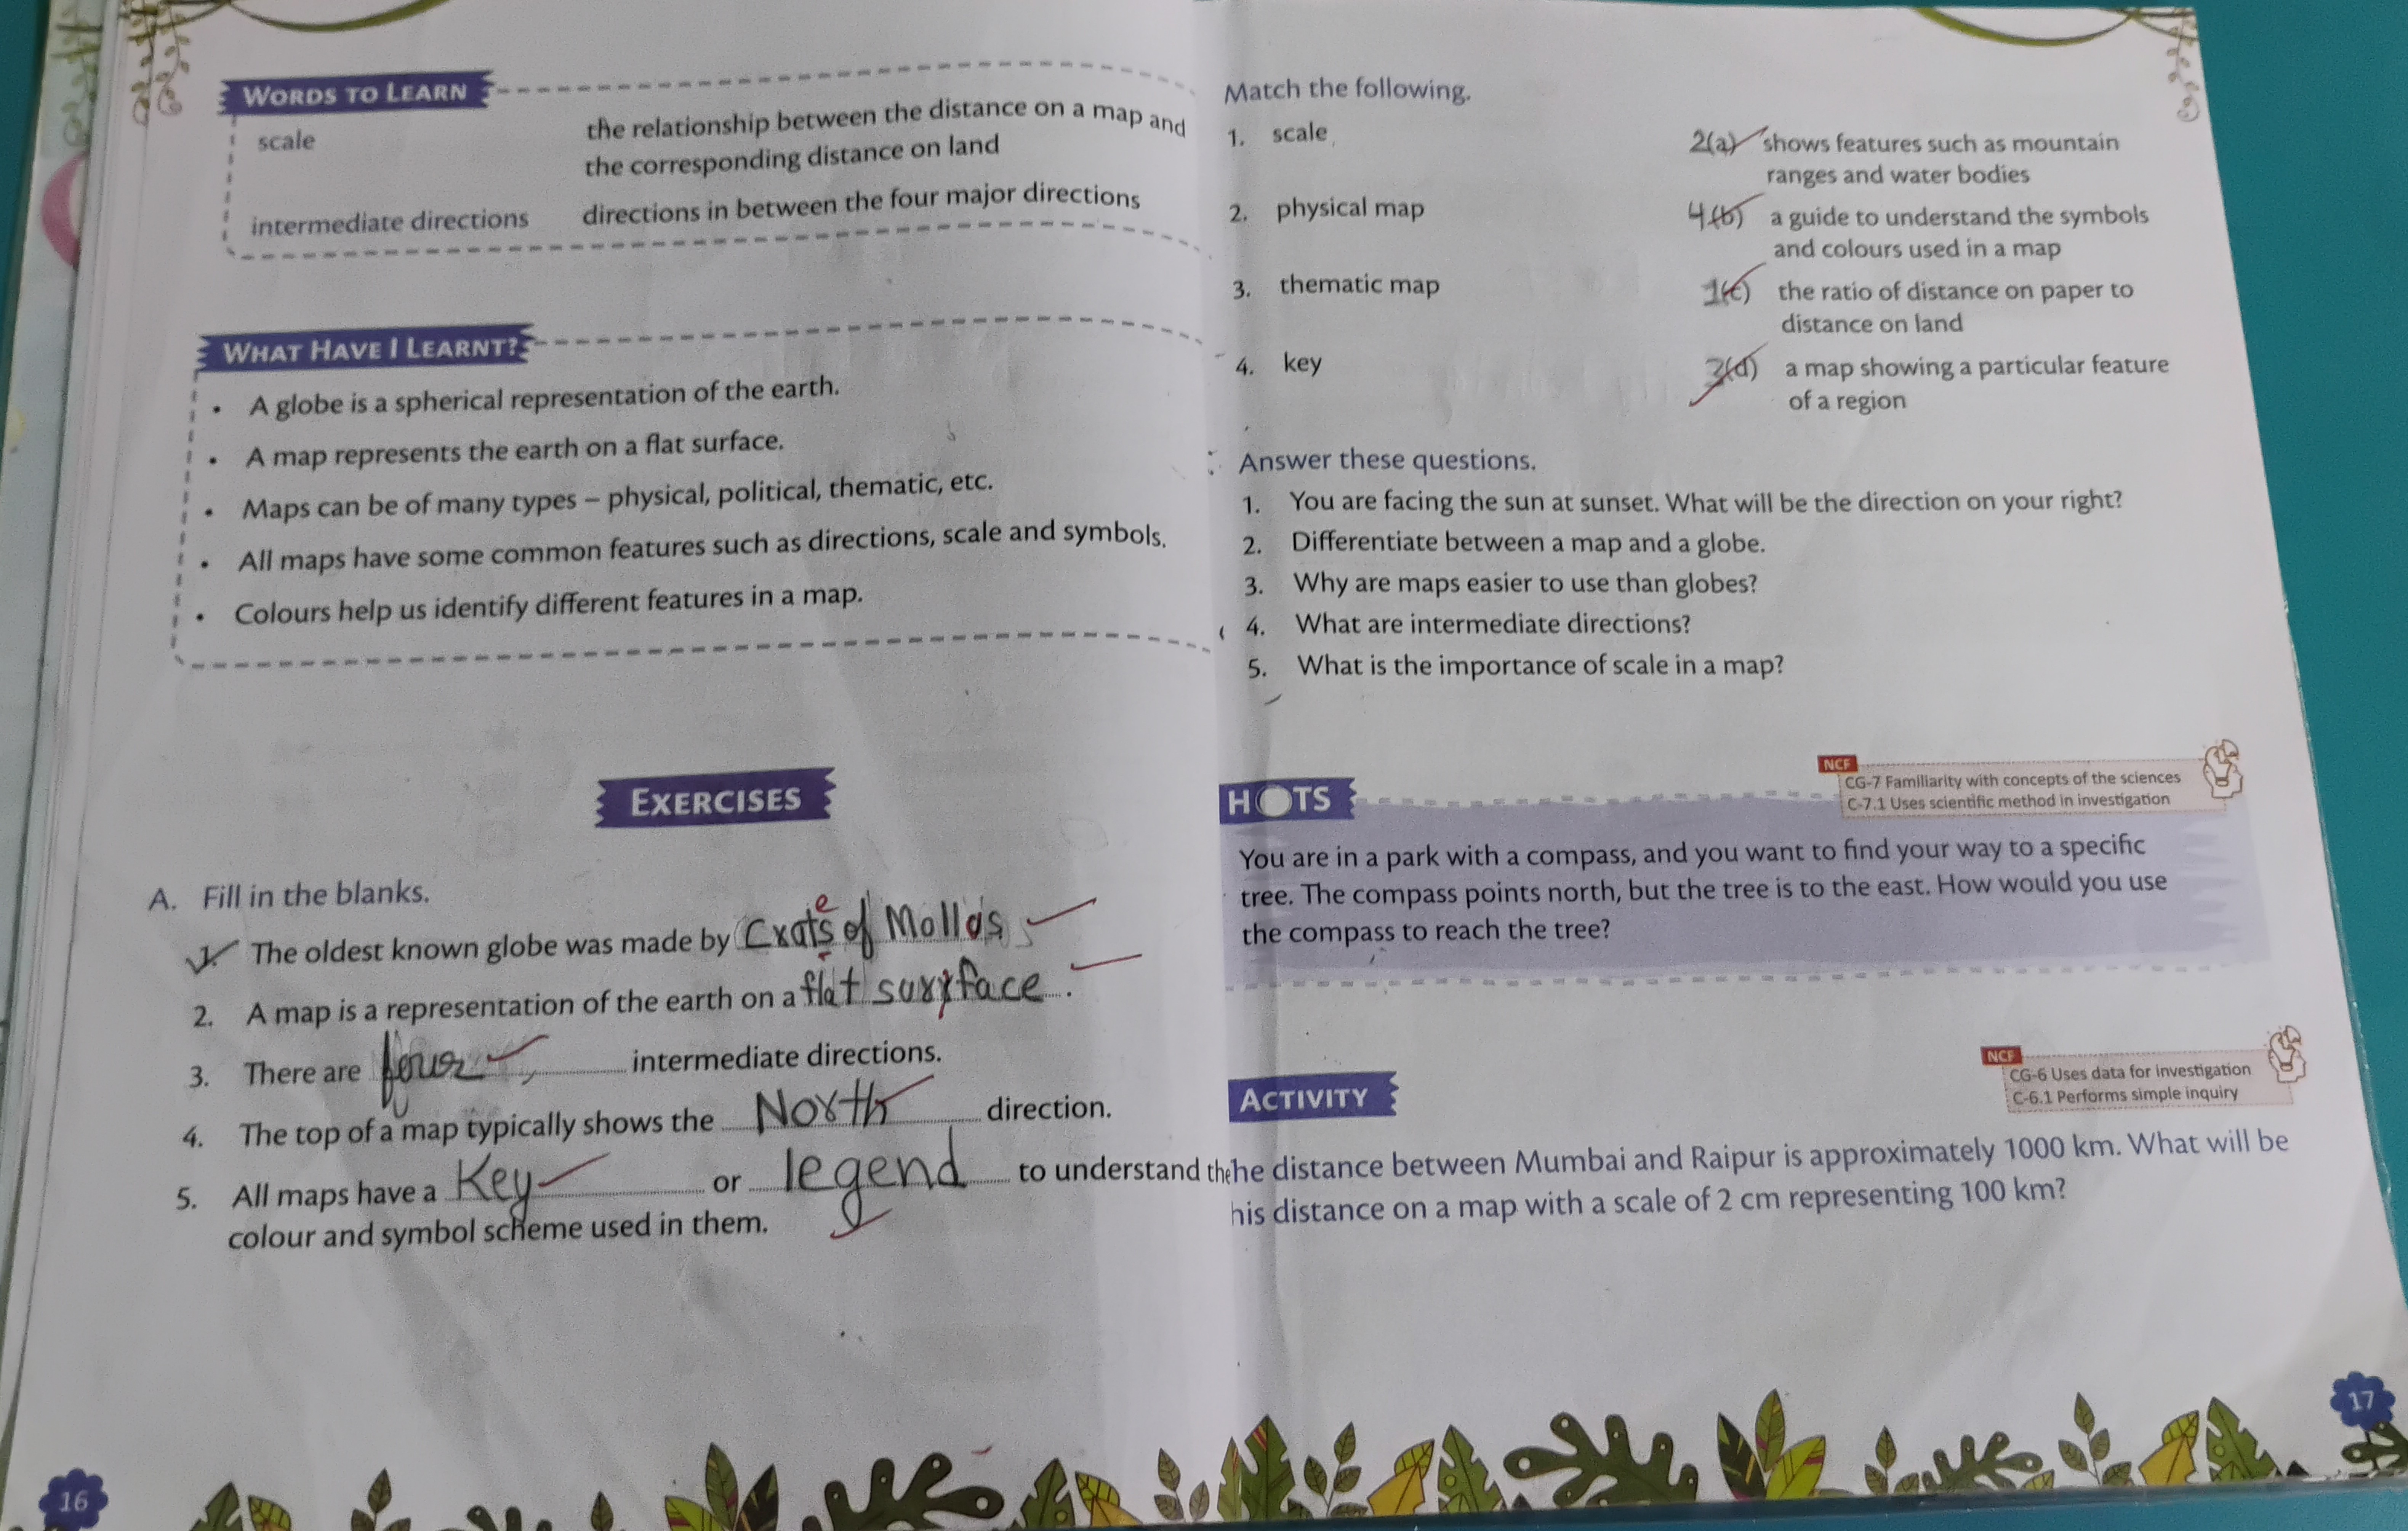 WORDS TO LEARN
scale
the relationship between the distance on a map and
the corresponding distance on land
intermediate directions
directions in between the four major directions
WHAT HAVE I LEARNT?
• A globe is a spherical representation of the earth.
• A map represents the earth on a flat surface.
• Maps can be of many types – physical, political, thematic, etc.
• All maps have some common features such as directions, scale and symbols.
• Colours help us identify different features in a map.
EXERCISES
A. Fill in the blanks.
1. The oldest known globe was made by Crates of Mallos
2. A map is a representation of the earth on a flat surface.
3. There are four intermediate directions.
4. The top of a map typically shows the North direction.
5. All maps have a Key or legend to understand the
colour and symbol scheme used in them.
16
Match the following.
1. scale
2(a) shows features such as mountain
ranges and water bodies
2. physical map
4(b) a guide to understand the symbols
and colours used in a map
3. thematic map
1(c) the ratio of distance on paper to
distance on land
4. key
3(d) a map showing a particular feature
of a region
Answer these questions.
1. You are facing the sun at sunset. What will be the direction on your right?
2. Differentiate between a map and a globe.
3. Why are maps easier to use than globes?
4. What are intermediate directions?
5. What is the importance of scale in a map?
HOTS
NCF
CG-7 Familiarity with concepts of the sciences
C-7.1 Uses scientific method in investigation
You are in a park with a compass, and you want to find your way to a specific
tree. The compass points north, but the tree is to the east. How would you use
the compass to reach the tree?
ACTIVITY
NCF
CG-6 Uses data for investigation
C-6.1 Performs simple inquiry
he distance between Mumbai and Raipur is approximately 1000 km. What will be
his distance on a map with a scale of 2 cm representing 100 km?
17